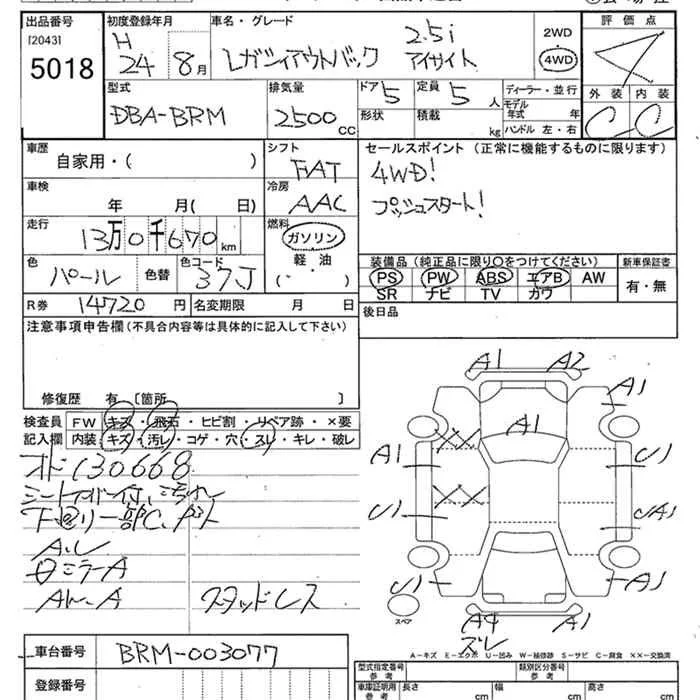 出品番号
[2043]
5018
初度登録年月
H
24年 8月
車名・グレード
レガシィアウトバック 2.5i
アイサイト
2WD
4WD
評価点
4
外装 内装
C C
型式
DBA-BRM
排気量
2500 CC
ドア 5
形状
定員 5 人
積載 kg
ディーラー・並行
モデル年式 年
ハンドル 左・右
車歴
自家用・( )
シフト
FAT
セールスポイント(正常に機能するものに限ります)
4WD!
プッシュスタート!
車検
年 月( 日)
冷房
AAC
走行
13万0千670km
燃料
ガソリン
軽油
( ・ )
色
パール
色替
色コード
37J
装備品(純正品に限り○をつけてください)
PS PW ABS エアB AW
SR ナビ TV カワ
新車保証書
有・無
R券 14720円
名変期限 月 日
後日品
注意事項申告欄(不具合内容等は具体的に記入して下さい)
修復歴 有[箇所 ]
検査員記入欄
FW キズ・飛石・ヒビ割・リペア跡・×要
内装 キズ・汚レ・コゲ・穴・スレ・キレ・破レ
オド130668
A・レ
スタッドレス
A1 A2
A1
A1
A1
XX
U1
XX
U1
U1
A1
A4
A1
スペア
A-キズ E-エクボ U-凹み W-補修跡 S-サビ C-腐食 XX-交換済
車台番号
BRM-003077
登録番号
型式指定番号
参考
類別区分番号
参考
車庫証明用
参考
長さ cm
幅 cm
高さ cm